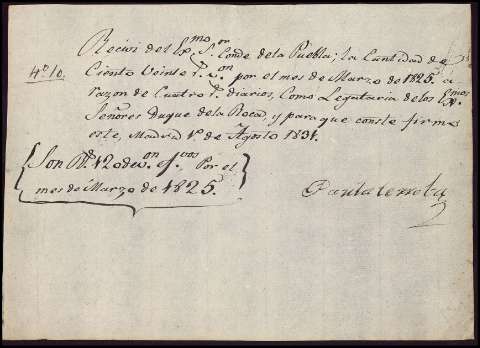 Recivi del Exmo. Sor. Conde de la Puebla; la Cantidad de
4º. 10.
Ciento Veinte rs. von. por el mes de Marzo de 1825. a
razon de Cuatro rs. diarios, Como Legataria de los Exmos.
Señores Duque de la Roca, y para que conste firmo
este, Madrid 1º. de Agosto 1831.
Son Rs. 120 de von. efvos. Por el
mes de Marzo de 1825.